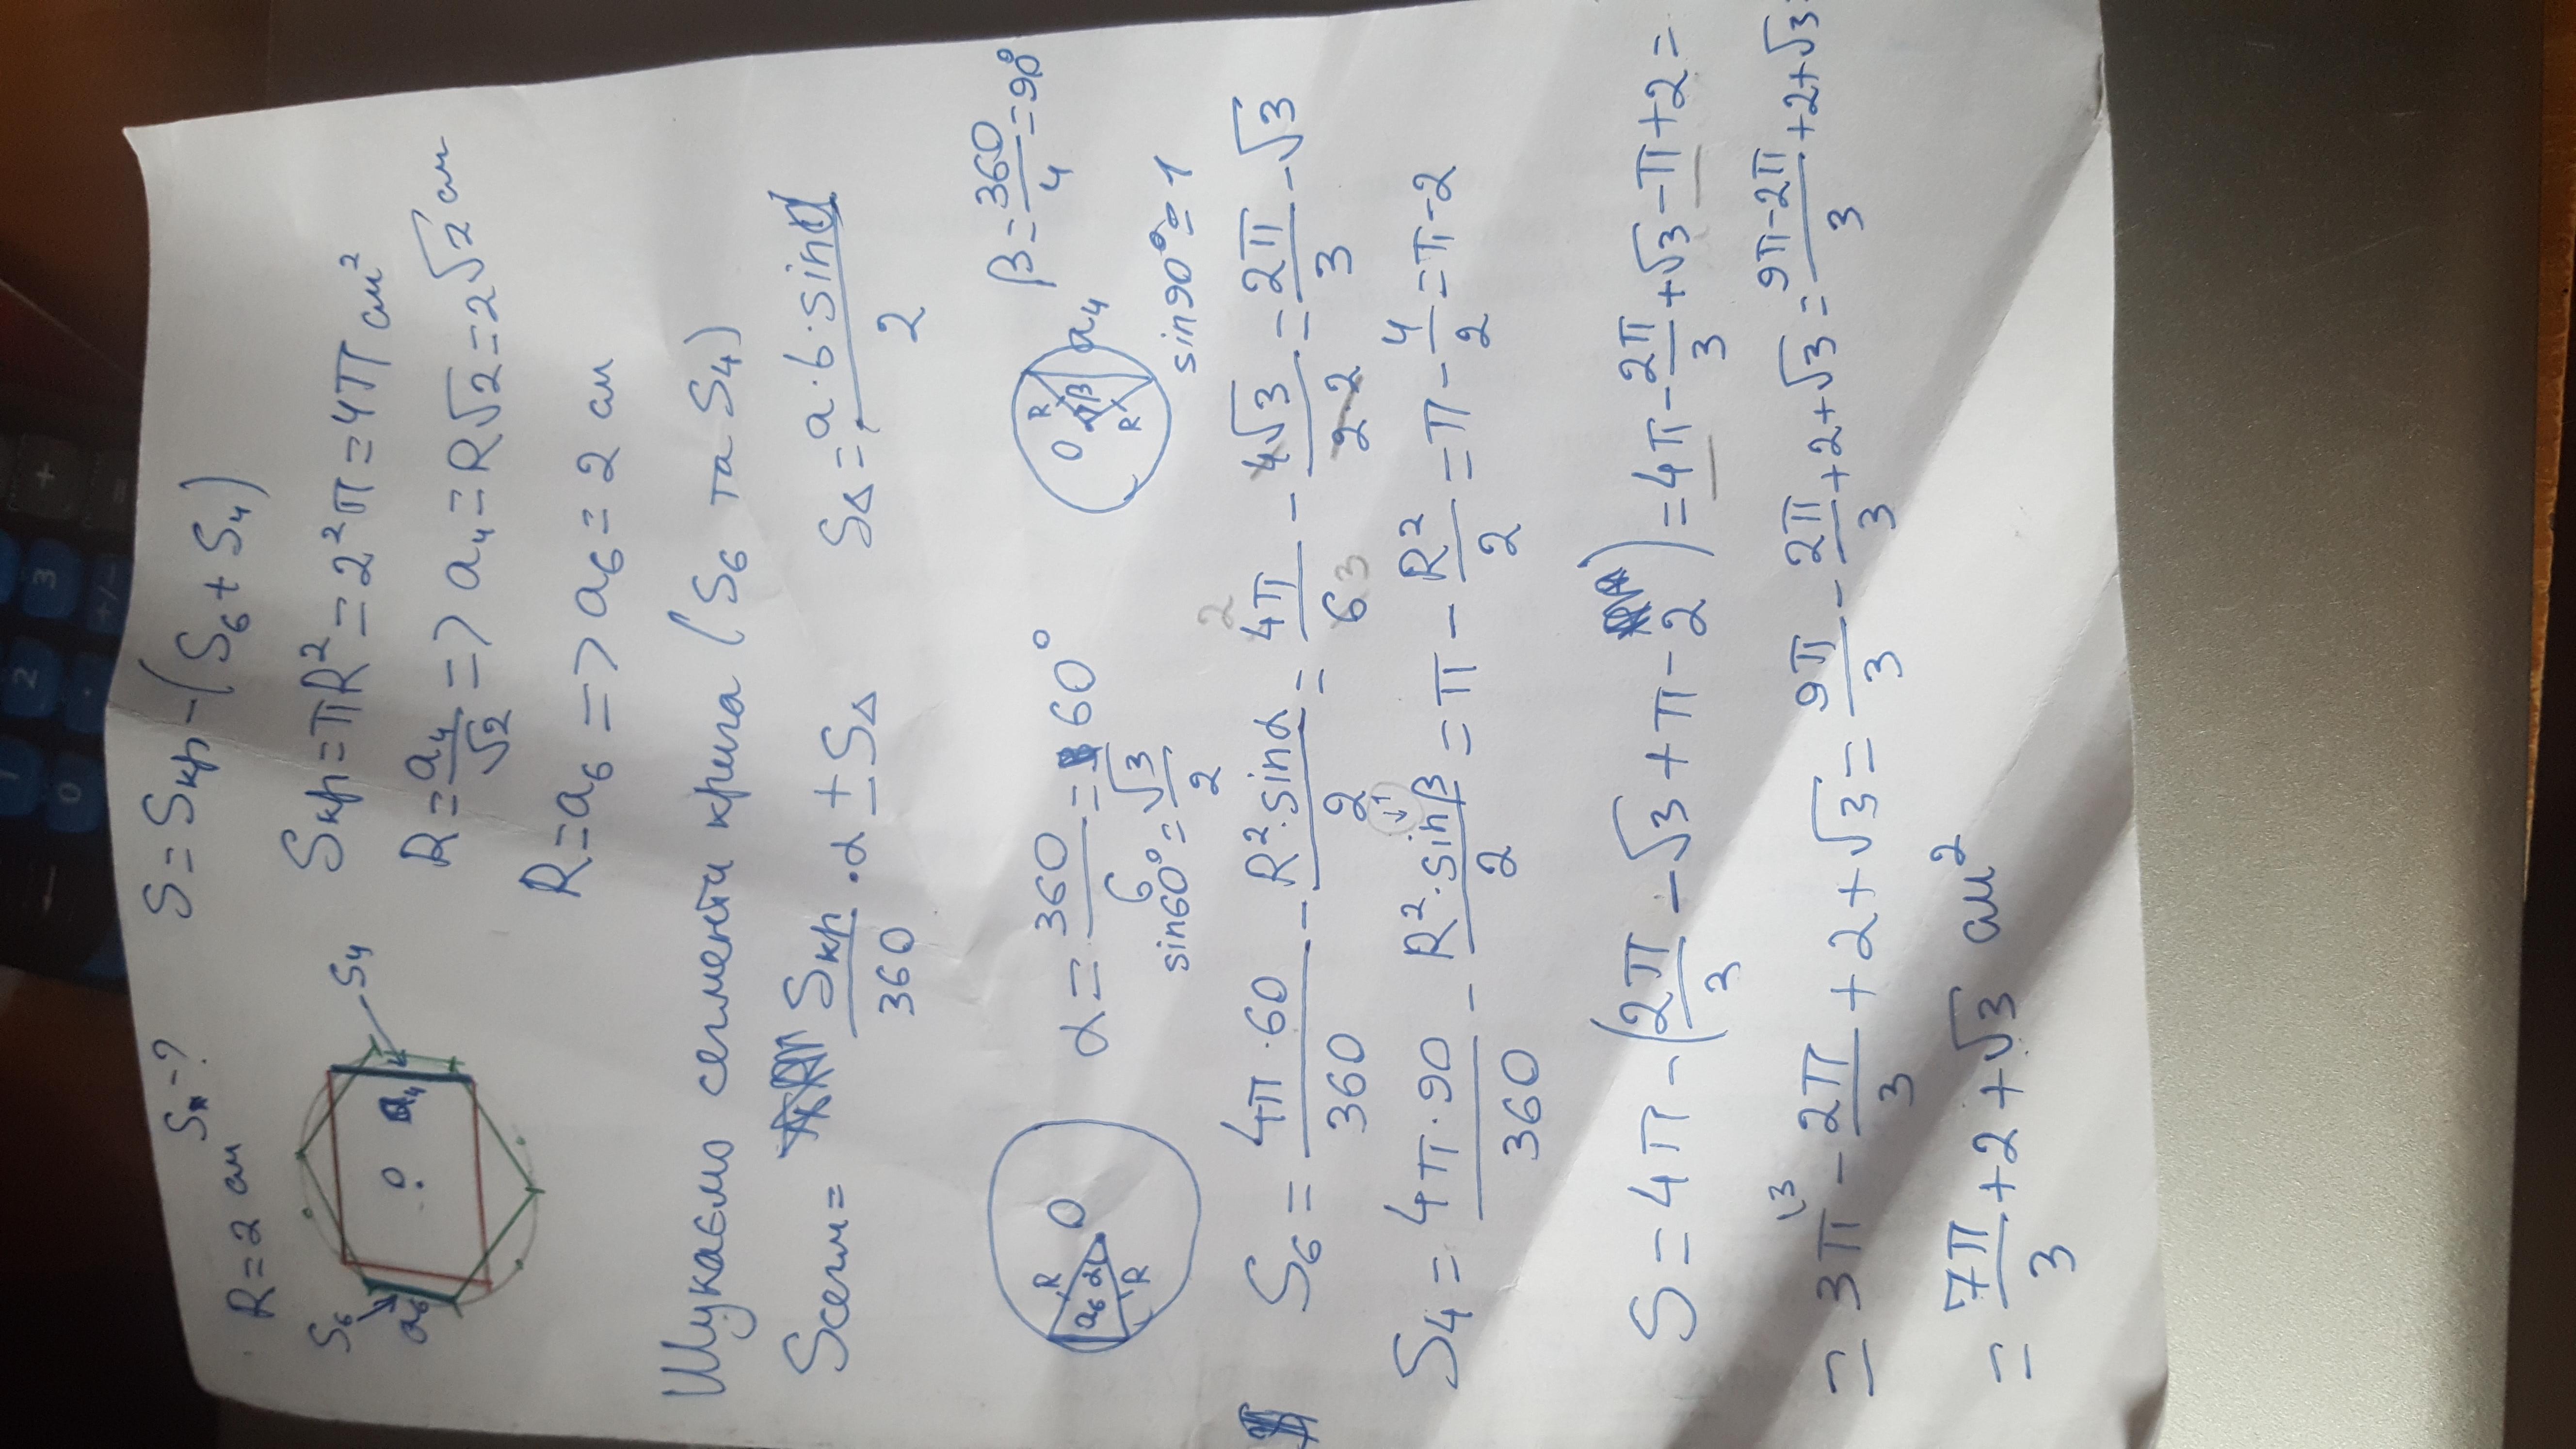 R=2 см S-? S=Sкр-(S₆+S₄)
S₆ a₆ O a₄ S₄
Sкр=πR²=2²π=4π см²
R=a₄/√2 => a₄=R√2=2√2 см
R=a₆ => a₆=2 см
Шукаємо сегменти круга (S₆ та S₄)
Sсегм= Sкр/360 · α ± S∆ S∆= a·b·sinα/2
a₆ α R R O α=360/6=60° O R R β a₄ β=360/4=90°
sin60°=√3/2 sin90°=1
S₆= 4π·60/360 - R²·sinα/2 = 4π/6 - 4√3/2·2 = 2π/3 - √3
2 3
S₄= 4π·90/360 - R²·sinβ/2 = π - R²/2 = π - 4/2 = π-2
1
S=4π-(2π/3 - √3+π-2)=4π-2π/3+√3-π+2=
=3π\3 - 2π/3 +2+√3= 9π/3 - 2π/3 +2+√3= 9π-2π/3 +2+√3=
= 7π/3 +2+√3 см²
+
=
3
2
1
0
.
+/-